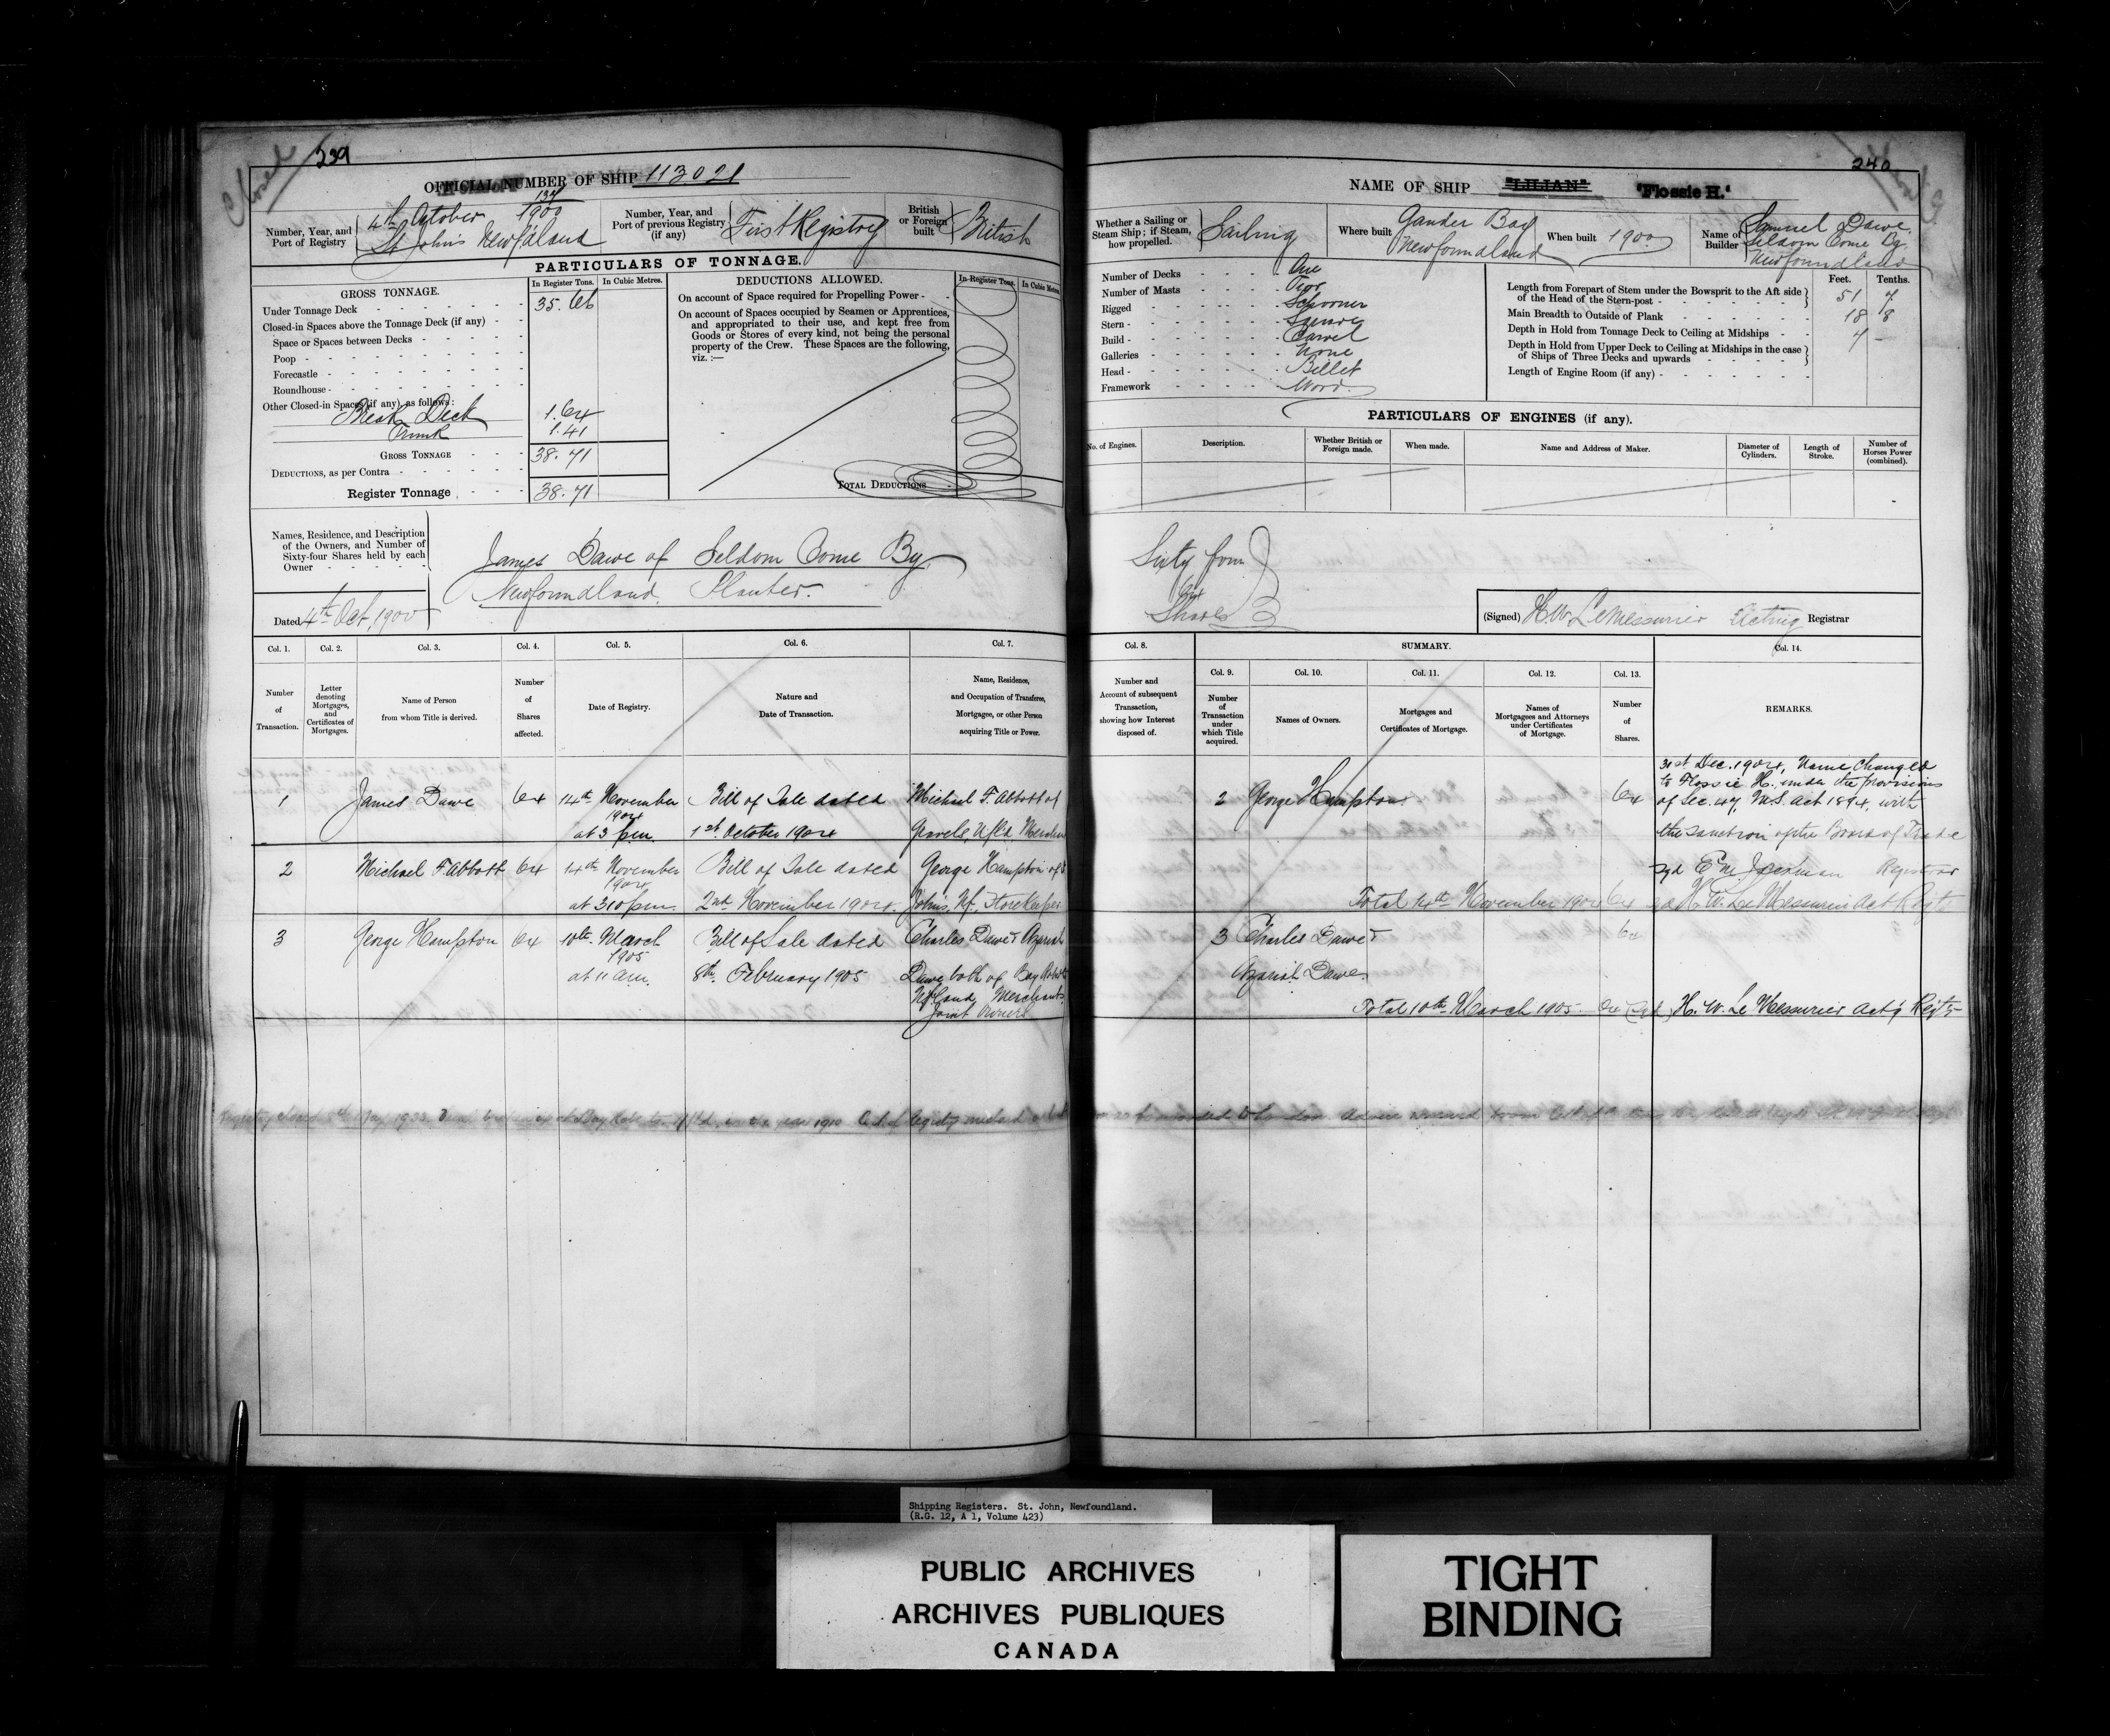 Closed
239
OFFICIAL NUMBER OF SHIP 113021
Number, Year, and
Port of Registry
134/1900
4th October
St John's Newf'dland
Number, Year, and
Port of previous Registry
(if any)
First Registry
British
or Foreign
built
British
PARTICULARS OF TONNAGE.
GROSS TONNAGE.
In Register Tons.
In Cubic Metres.
Under Tonnage Deck 35.66
Closed-in Spaces above the Tonnage Deck (if any)
Space or Spaces between Decks
Poop
Forecastle
Roundhouse
Other Closed-in Spaces (if any), as follows:
Break Deck 1.64
Trunk 1.41
GROSS TONNAGE 38.71
DEDUCTIONS, as per Contra
Register Tonnage 38.71
DEDUCTIONS ALLOWED.
In Register Tons.
In Cubic Metres.
On account of Space required for Propelling Power
On account of Spaces occupied by Seamen or Apprentices,
and appropriated to their use, and kept free from
Goods or Stores of every kind, not being the personal
property of the Crew. These Spaces are the following,
viz. :—
TOTAL DEDUCTIONS
Names, Residence, and Description
of the Owners, and Number of
Sixty-four Shares held by each
Owner
James Dawe of Seldom Come By
Newfoundland, Planter.
Dated 4th Oct. 1900
Col. 1.
Number
of
Transaction.
Col. 2.
Letter
denoting
Mortgages,
and
Certificates of
Mortgages.
Col. 3.
Name of Person
from whom Title is derived.
Col. 4.
Number
of
Shares
affected.
Col. 5.
Date of Registry.
Col. 6.
Nature and
Date of Transaction.
Col. 7.
Name, Residence,
and Occupation of Transferee,
Mortgagee, or other Person
acquiring Title or Power.
1 James Dawe 64 14th November Bill of Sale dated Michael F. Abbott of
1904
at 3 pm 1st October 1904 Gravels, Nf'ld
2 Michael F. Abbott 64 14th November Bill of Sale dated George Hampton of St
1904
at 3 10 pm. 2nd November 1904. Johns, Nf. Storekeeper
3 George Hampton 64 10th March Bill of Sale dated Charles Dawe & Azariah
1905
at 11 am. 8th February 1905 Dawe both of Bay Roberts
Nf'land, Merchants
Joint Owners
240
Closed
NAME OF SHIP "LILIAN" "Flossie H."
Whether a Sailing or
Steam Ship; if Steam,
how propelled.
Sailing
Where built
Gander Bay
Newfoundland
When built 1900
Name of
Builder
Samuel Dawe,
Seldom Come By,
Newfoundland
Number of Decks One
Number of Masts Two
Rigged Schooner
Stern Square
Build Carvel
Galleries None
Head Billet
Framework Wood
Feet. Tenths.
Length from Forepart of Stem under the Bowsprit to the Aft side
of the Head of the Stern-post 51 7
Main Breadth to Outside of Plank 18 8
Depth in Hold from Tonnage Deck to Ceiling at Midships 7 -
Depth in Hold from Upper Deck to Ceiling at Midships in the case
of Ships of Three Decks and upwards
Length of Engine Room (if any)
PARTICULARS OF ENGINES (if any).
No. of Engines.
Description.
Whether British or
Foreign made.
When made.
Name and Address of Maker.
Diameter of
Cylinders.
Length of
Stroke.
Number of
Horses Power
(combined).
Sixty four
64
Shares
(Signed) H. W. LeMessurier Acting Registrar
Col. 8.
Number and
Account of subsequent
Transaction,
showing how Interest
disposed of.
SUMMARY.
Col. 9.
Number
of
Transaction
under
which Title
acquired.
Col. 10.
Names of Owners.
Col. 11.
Mortgages and
Certificates of Mortgage.
Col. 12.
Names of
Mortgagees and Attorneys
under Certificates
of Mortgage.
Col. 13.
Number
of
Shares.
Col. 14.
REMARKS.
2 George Hampton 64
31st Dec. 1904, Name Changed
to Flossie H. under the provisions
of Sec. 47, M.S. Act 1894, with
the sanction of the Board of Trade
sgd E M Jackman Registrar
Total 14th November 1904 64 sgd H. W. Le Messurier Act Regtr
3 Charles Dawe & 64
Azariah Dawe
Total 10th March 1905. 64 (sgd) H. W. Le Messurier Act'g Regtr
Registry closed 1933. at Bay Roberts, Nf'ld, in the year 1910
Shipping Registers. St. John, Newfoundland.
(R.G. 12, A 1, Volume 423)
PUBLIC ARCHIVES
ARCHIVES PUBLIQUES
CANADA
TIGHT
BINDING